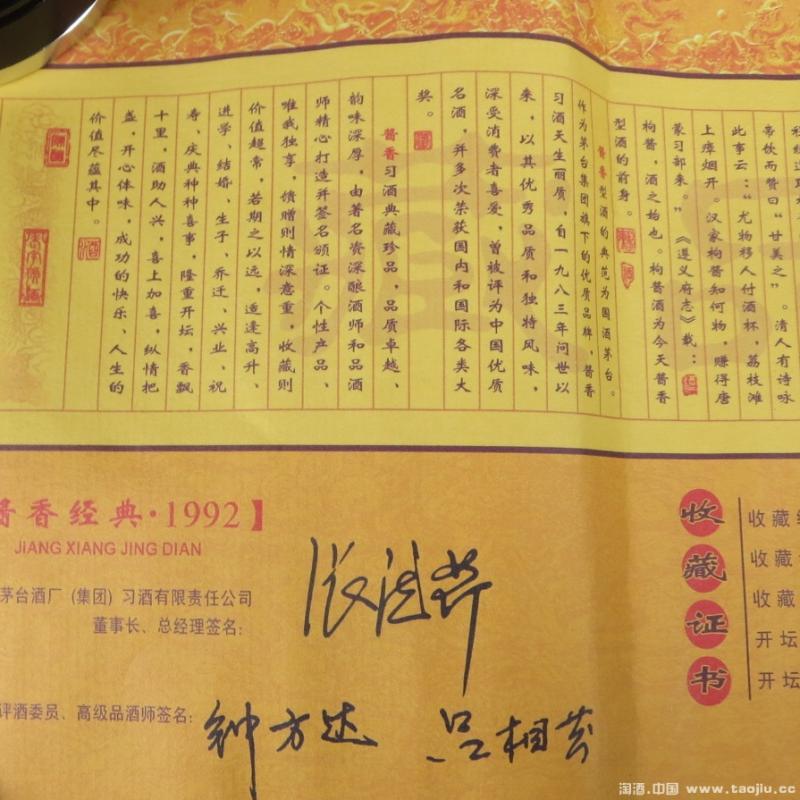 帝饮而赞曰“甘美之”。清人有诗咏
此事云：“尤物移人付酒杯，荔枝滩
上瘴烟开。汉家枸酱知何物，赚得唐
蒙习部来。”《遵义府志》载：
枸酱，酒之始也。枸酱酒为今天酱香
型酒的前身。
酱香型酒的典范为国酒茅台。
作为茅台集团旗下的优质品牌，酱香
习酒天生丽质，自一九八三年问世以
来，以其优秀品质和独特风味，
深受消费者喜爱，曾被评为中国优质
名酒，并多次荣获国内和国际各类大
奖。
酱香习酒典藏珍品，品质卓越、
韵味深厚，由著名资深酿酒师和品酒
师精心打造并签名颁证。个性产品、
唯我独享，馈赠则情深意重，收藏则
价值超常，若期之以远，适逢高升、
进学、结婚、生子、乔迁、兴业、祝
寿、庆典种种喜事，隆重开坛，香飘
十里，酒助人兴，喜上加喜，纵情把
盏，开心体味，成功的快乐、人生的
价值尽蕴其中。
酱香经典·1992】
JIANG XIANG JING DIAN
茅台酒厂（集团）习酒有限责任公司
董事长、总经理签名：
评酒委员、高级品酒师签名：
钟方达 吕相芬
收藏证书
收藏
收藏
收藏
开坛
开坛
淘酒.中国 www.taojiu.cc